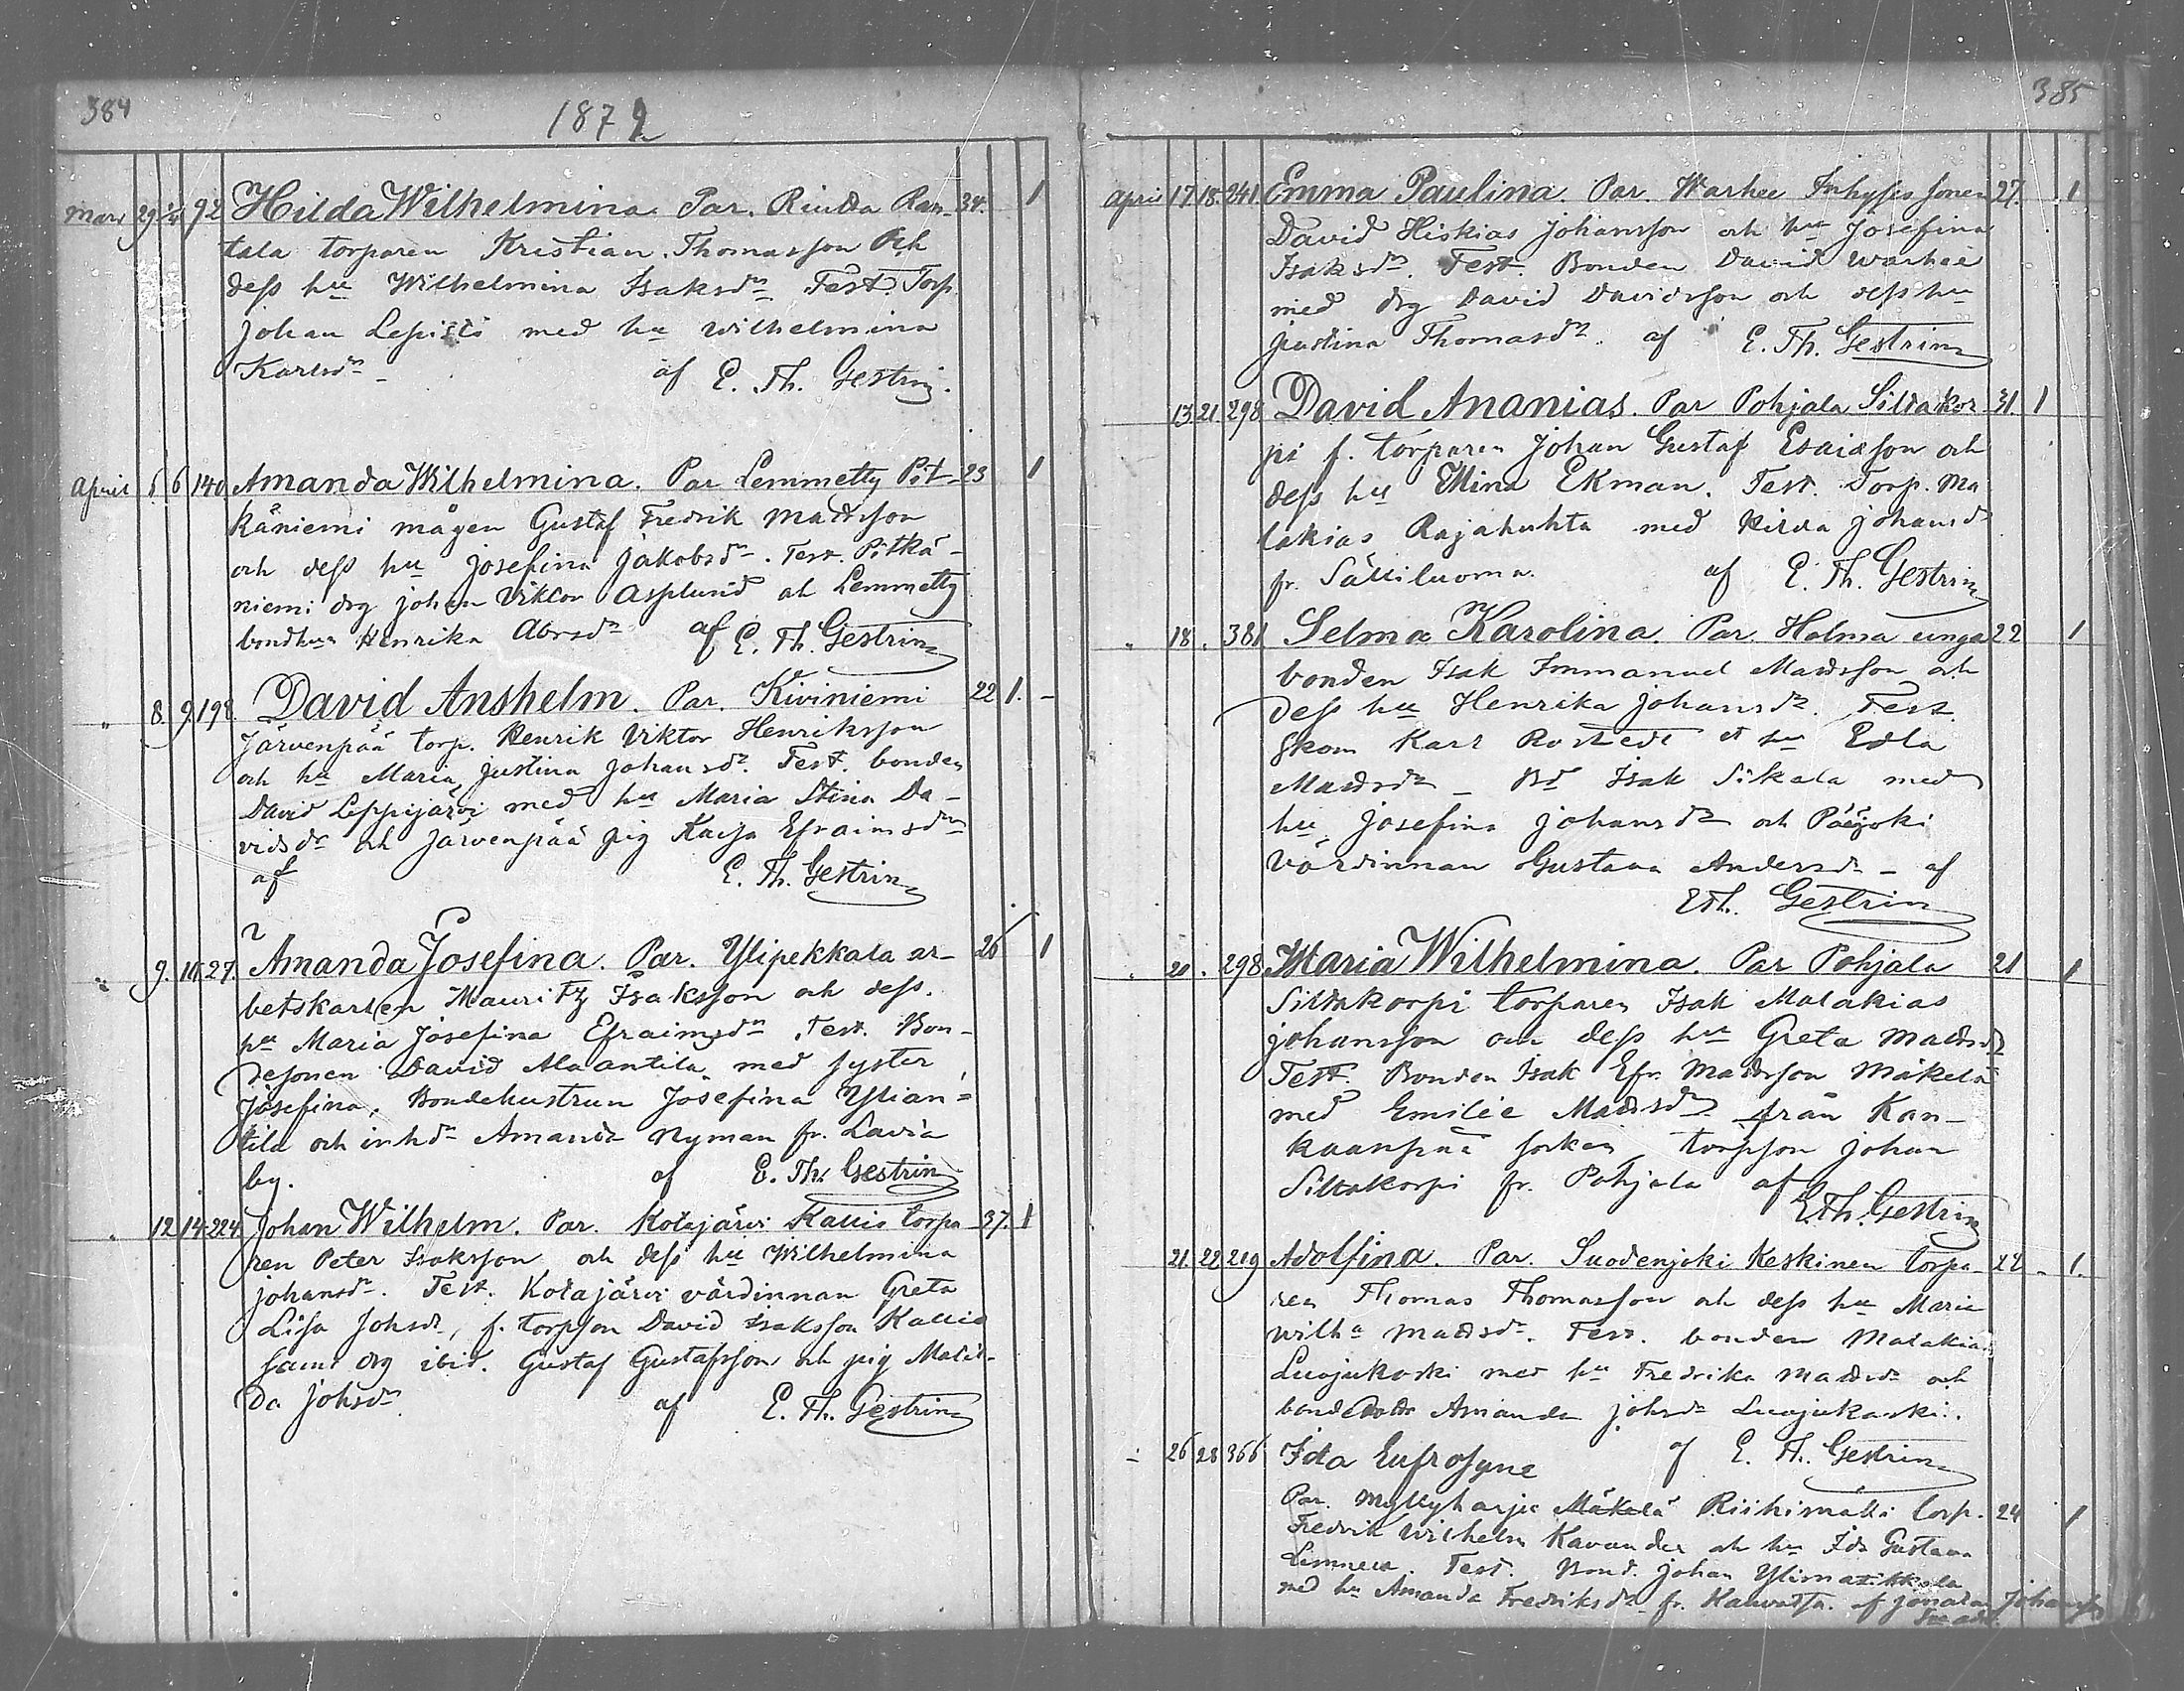 384
1872
Mars 29 1/4 92 Hilda Wilhelmina. Par. Rinda Ran- 34. 1
tala torparen Kristian Thomasson Och
dess hu Wilhelmina Isaksdr Test. Torp.
Johan Lepistö med hu Wilhelmina
Karlsdr af E. Th. Gestrin.
April 5 6 140 Amanda Wilhelmina. Par Lemmetty Pit- 23 1
käniemi mågen Gustaf Fredrik Mattsson
och dess hu Josefina Jakobsdr. Test. Pitkä-
niemi drg Johan Viktor Asplund och Lemmetty
bondhun Henrika Abrsdr af E. Th. Gestrin
" 8. 9. 198. David Anshelm. Par. Kiviniemi 22 1. -
Järvenpää torp. Henrik Viktor Henriksson
och hu Maria Justina Johansdr. Test. bonden
David Leppijärvi med hu Maria Stina Da-
vidsdr och Järvenpää pig Kaisa Efraimsdr
af E. Th. Gestrin
" 9. 10. 27. Amanda Josefina. Par. Ylipekkala ar- 26 1
betskarlen Mauritz Isaksson och dess
hu Maria Josefina Efraimsdr. Test. Bon-
desonen David Alaantila med syster
Josefina, Bondehustrun Josefina Ylian=
tila och inhdr Amanda Nyman fr. Lavia
by. af E. Th. Gestrin
" 12 14. 224. Johan Wilhelm. Par. Kotajärvi Kallis torpa- 37. 1
ren Peter Isaksson och dess hu Wilhelmina
Johansdr. Test. Kotajärvi värdinnan Greta
Lisa Johsdr, f. torpson David Isaksson Kallis
samt drg ibid. Gustaf Gustafsson och pig Matil-
da Johsdr af E. Th. Gestrin
385
April 17. 18. 241. Emma Paulina. Par. Warhee Inhyses sonen 27. 1
David Hiskias Johansson och hu Josefina
Isaksdr. Test. Bonden David Warhee
med drg David Davidsson och dess hu
Justina Thomasdr. af E. Th. Gestrin
13. 21. 298 David Ananias. Par Pohjala Siltakor- 31. 1
pi f. torparen Johan Gustaf Esaiasson och
dess hu Mina Ekman. Test. Torp. Ma
lakias Rajahuhta med Hilda Johansd
fr. Sälliluoma. af E. Th. Gestrin
" 18 . 381 Selma Karolina. Par. Holma unga 22 1
bonden Isak Immanuel Mattsson och
dess hu Henrika Johansdr. Test.
skom Karl Rostedt et hu Edla
Mattsdr - Bd Isak Sikala med
hu Josefina Johansdr och Pääjoki
värdinnan Gustava Andersdr - af
E Th. Gestrin
" 20 . 298 Maria Wilhelmina. Par Pohjala 21 1
Siltakorpi torparen Isak Malakias
Johansson och dess hu Greta Mattsdr
Test. Bonden Isak Efr. Mattsson Mäkelä
med Emilie Mattsdr från Kan-
kaanpää socken torpson Johan
Siltakorpi fr. Pohjala af
E. Th. Gestrin
21. 22 219 Adolfina. Par. Suodenjoki Keskinen torpa- 22 1.
ren Thomas Thomasson och dess hu Maria
Wilha Mattsdr. Test. bonden Malakias
Luojukoski med hu Fredrika Mattsdr och
bondedottr Amanda Johsdr Luojukoski.
af E. Th. Gestrin
- 26 28 366 Ida Eufrosyne
Par. Myllyharju Mäkelä Riihimäki torp. 24 1
Fredrik Wilhelm Kavander och hu Ida Gustava
Limnell. Test. Bond. Johan Ylimattila
med hu Amanda Fredriksdr fr. Kauvatsa. af Jonatan Johansson